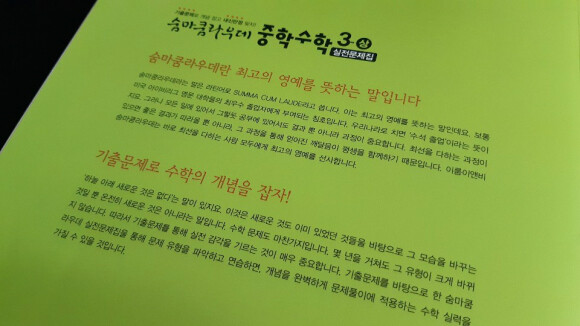 기출문제로 개념 잡고 내신만점 맞자!
숨마쿰라우데 중학수학 3-상 실전문제집
숨마쿰라우데란 최고의 영예를 뜻하는 말입니다
숨마쿰라우데라는 말은 라틴어로 SUMMA CUM LAUDE라고 씁니다. 이는 최고의 영예를 뜻하는 말인데요. 보통
미국 아이비리그 명문 대학들의 최우수 졸업자에게 부여되는 칭호입니다. 우리나라로 치면 '수석 졸업'이라는 뜻이
지요. 그러나 모든 일에 있어서 그렇듯 공부에 있어서도 결과 뿐 아니라 과정이 중요합니다. 최선을 다하는 과정이
있으면 좋은 결과가 따라올 뿐 아니라, 그 과정을 통해 얻어진 깨달음이 평생을 함께하기 때문입니다. 이룸이앤비
숨마쿰라우데는 바로 최선을 다하는 사람 모두에게 최고의 영예를 선사합니다.
기출문제로 수학의 개념을 잡자!
'하늘 아래 새로운 것은 없다'는 말이 있지요. 이것은 새로운 것도 이미 있었던 것들을 바탕으로 그 모습을 바꾸는
것일 뿐 온전히 새로운 것은 아니라는 말입니다. 수학 문제도 마찬가지입니다. 몇 년을 거쳐도 그 유형이 크게 바뀌
지 않습니다. 따라서 기출문제를 통해 실전 감각을 기르는 것이 매우 중요합니다. 기출문제를 바탕으로 한 숨마쿰
라우데 실전문제집을 통해 문제 유형을 파악하고 연습하면, 개념을 완벽하게 문제풀이에 적용하는 수학 실력을
가질 수 있을 것입니다.